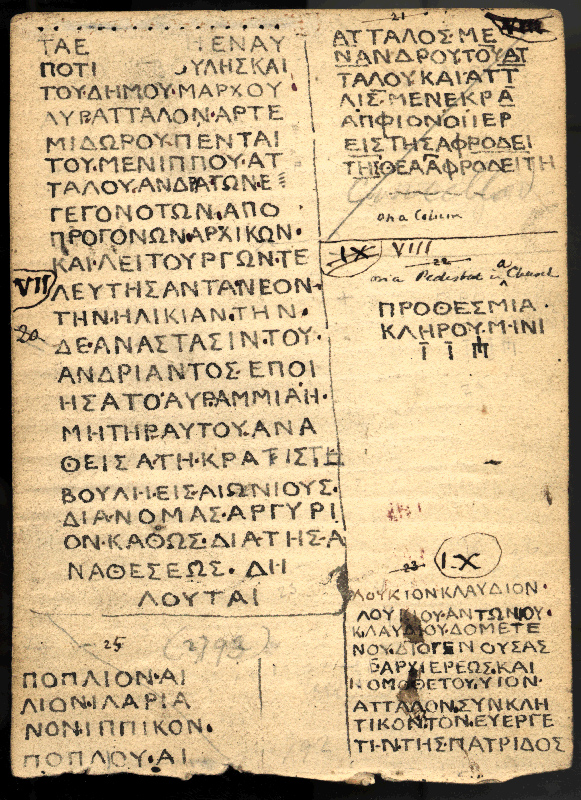 ΤΑΕ ΕΝΑΥ
ΠΟΤΙ ΟΥΛΗΣΚΑΙ
ΤΟΥ·ΔΗΜΟΥ·ΜΑΡΧΟΥ
ΑΥΡ·ΑΤΤΑΛΟΝ·ΑΡΤΕ
ΜΙΔΩΡΟΥ·ΠΕΝΤΑΙ
ΤΟΥ·ΜΕΝΙΠΠΟΥ·ΑΤ
ΤΑΛΟΥ·ΑΝΔΡΑΤΩΝΕ
ΓΕΓΟΝΟΤΩΝ·ΑΠΟ
ΠΡΟΓΟΝΩΝ·ΑΡΧΙΚΩΝ·
ΚΑΙ·ΛΕΙΤΟΥΡΓΩΝ·ΤΕ
VII
ΛΕΥΤΗΣΑΝΤΑ·ΝΕΟΝ·
ΤΗΝ·ΗΛΙΚΙΑΝ·ΤΗΝ·
20
ΔΕ·ΑΝΑΣΤΑΣΙΝ·ΤΟΥ·
ΑΝΔΡΙΑΝΤΟΣ·ΕΠΟΙ
ΗΣΑΤΟ·ΑΥΡ·ΑΜΜΙΑ·Η·
ΜΗΤΗΡ·ΑΥΤΟΥ·ΑΝΑ
ΘΕΙΣΑ·ΤΗ·ΚΡΑΤΙΣΤΗ
ΒΟΥΛΗ·ΕΙΣ·ΑΙΩΝΙΟΥΣ·
ΔΙΑΝΟΜΑΣ·ΑΡΓΥΡΙ
ΟΝ·ΚΑΘΩΣ·ΔΙΑ·ΤΗΣ·Α
ΝΑΘΕΣΕΩΣ·ΔΗ
ΛΟΥΤΑΙ
25
(2793)
ΠΟΠΛΙΟΝ·ΑΙ
ΛΙΟΝ·ΙΛΑΡΙΑ
ΝΟΝ·ΙΠΠΙΚΟΝ·
ΠΟΠΛΟΥ·ΑΙ
21
VIII
ΑΤΤΑΛΟΣ ΜΕ
ΝΑΝΔΡΟΥΤΟΥΑΤ
ΤΑΛΟΥ ΚΑΙ ΑΤΤ
ΛΙΣ·ΜΕΝΕΚΡΑ
ΑΠΦΙΟΝΟΙΙΕΡ
ΕΙΣ ΤΗΣ ΑΦΡΟΔΕΙ
ΤΗΣΘΕΑΑΦΡΟΔΕΙΤΗ
on a Column
IX VIII
22
on a Pedestal in a Church
ΠΡΟΘΕΣΜΙΑ·
ΚΛΗΡΟΥ·Μ·ΙΝΙ
23 IX
ΛΟΥΚΙΟΝΚΛΑΥΔΙΟΝ·
ΛΟΥΚΙΟΥ·ΑΝΤΩΝΙΟΥ·
ΚΛΑΥΔΙΟΥ·ΔΟΜΕΤΕ
ΝΟΥ·ΔΙΟΓΕΝΟΥΣΑΣ
ΑΡΧΙΕΡΕΩΣ·ΚΑΙ
ΝΟΜΟΘΕΤΟΥ·ΥΙΟΝ·
ΑΤΤΑΛΟΝ·ΣΥΝΚΛΗ
ΤΙΚΟΝ·ΤΟΝ·ΕΥΕΡΓΕ
ΤΙ·Ν·ΤΗΣ·ΠΑΤΡΙΔΟΣ